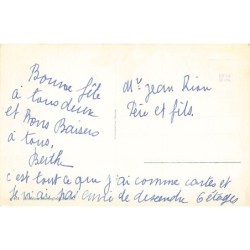 Bonne fête
à tous deux
et Bons Baisers
à tous,
Berthe
Mr Jean Rion
Père et fils.
c'est tout ce que j'ai comme cartes et
je n'ai pas envie de descendre 6 étages